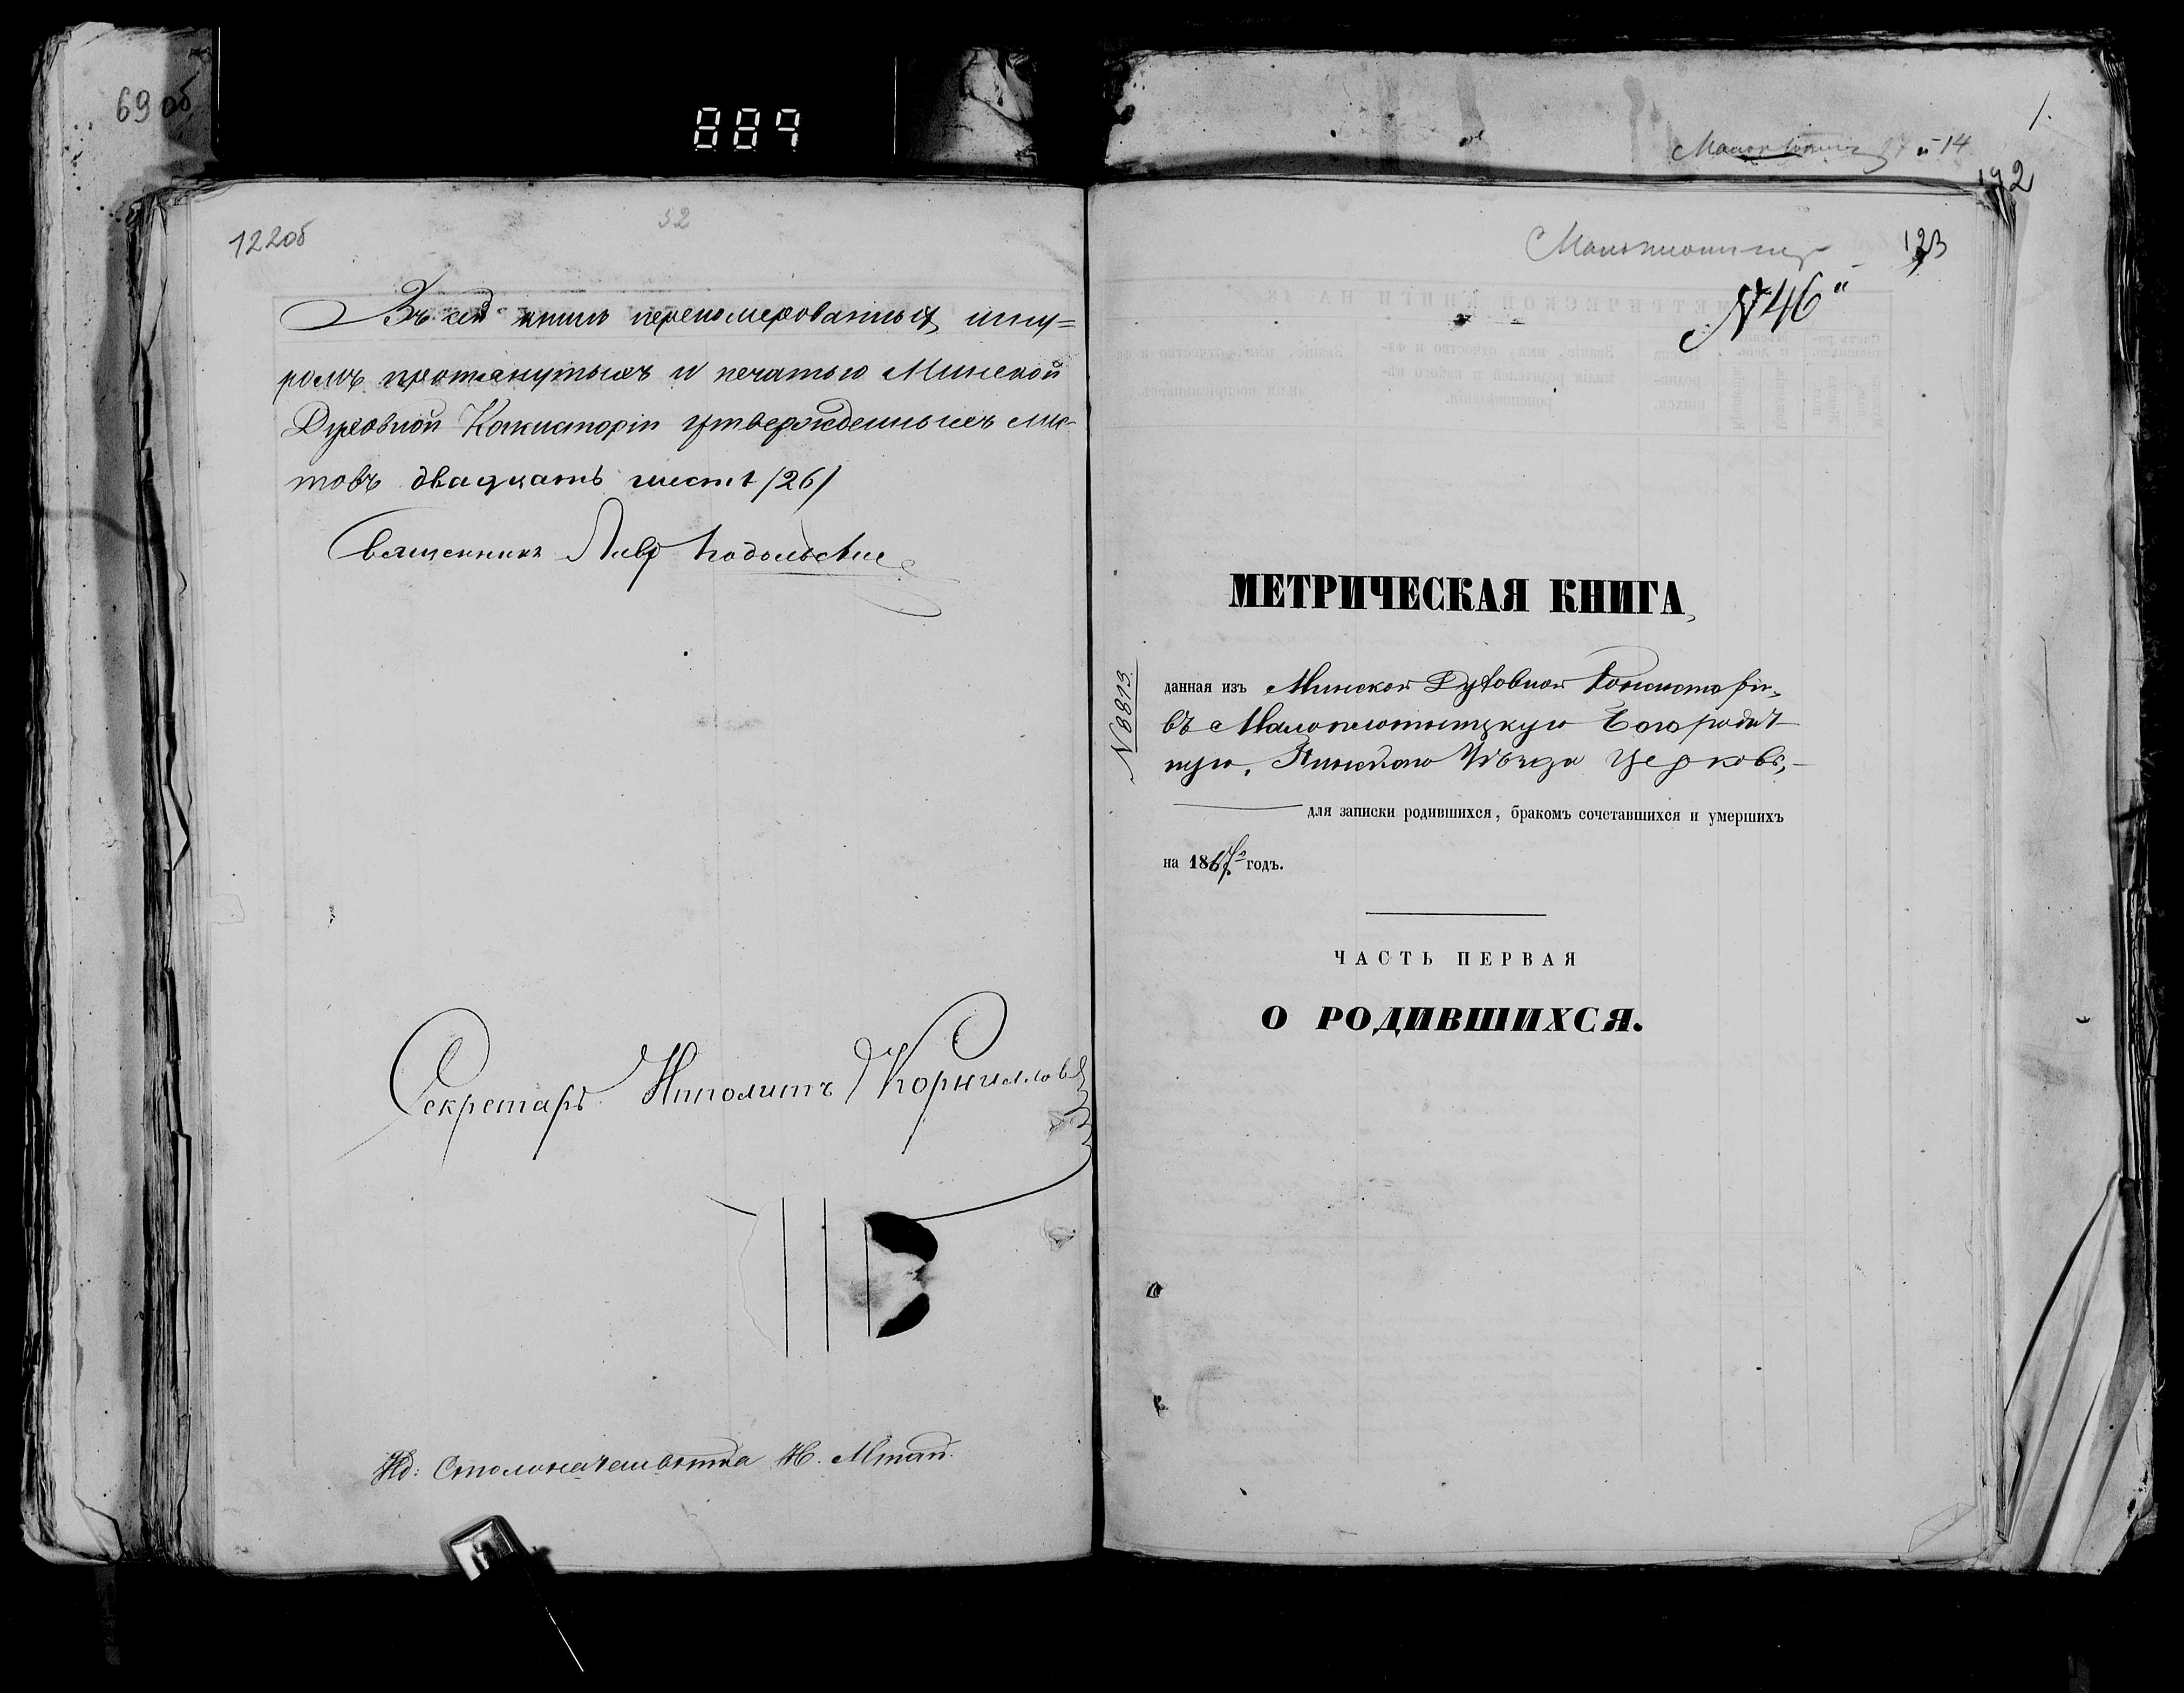 69 об
889
122об
52
Въ сей книгѣ перепомерованныхъ, шну=
ромъ протянутыхъ и печатью Минской
Духовной Консисторіи утвержденныхъ лис-
товъ двадцать шесть /26/
Священникъ Левъ Подольскій
Секретарь Ипполитъ Корниловъ
Ид: Столоначальника
1.
27 и 14
192
123
№ 46"
МЕТРИЧЕСКАЯ КНИГА,
№ 8813
данная изъ Минской Духовной Консисторіи,
въ Малоплотницкую Богородич-
ную, Пинскаго Уѣзда Церковь,-
для записки родившихся, бракомъ сочетавшихся и умершихъ
на 1867й годъ.
ЧАСТЬ ПЕРВАЯ
О РОДИВШИХСЯ.